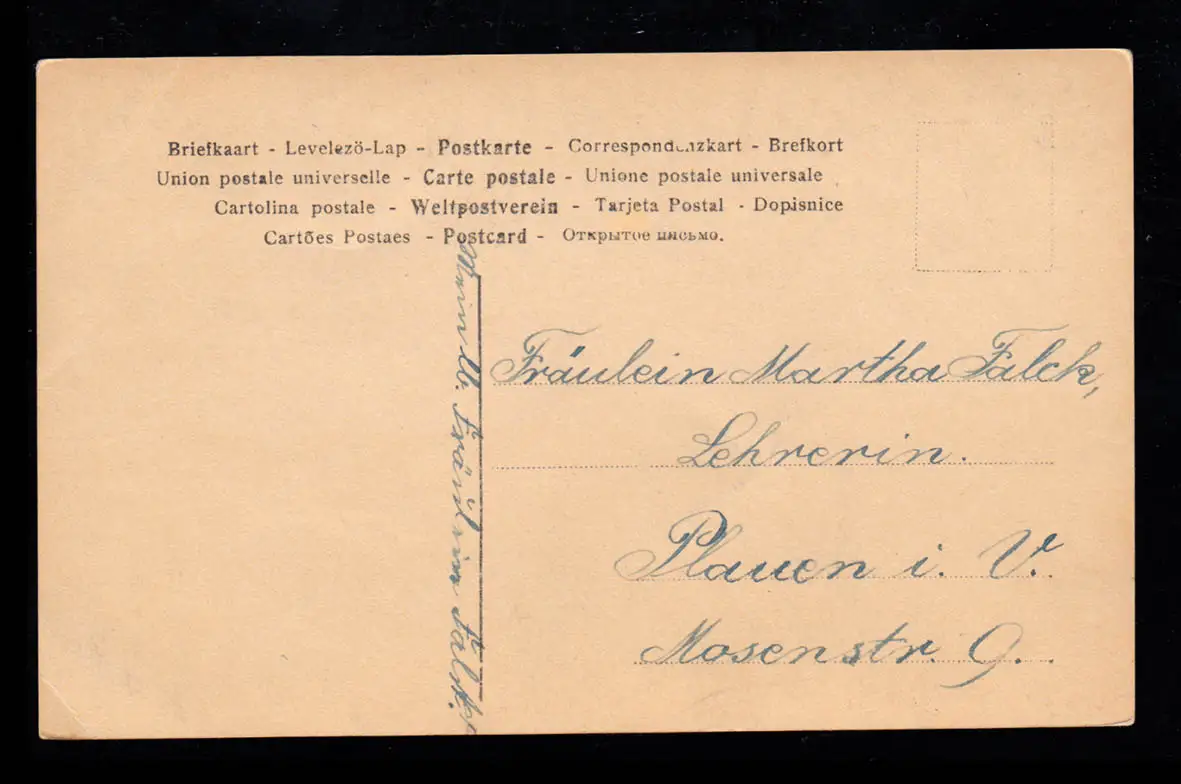 Briefkaart - Levelező-Lap - Postkarte - Correspondenzkart - Brefkort
Union postale universelle - Carte postale - Unione postale universale
Cartolina postale - Weltpostverein - Tarjeta Postal - Dopisnice
Cartões Postaes - Postcard - Открытое письмо.
Fräulein Martha Falck,
Lehrerin.
Plauen i. V.
Mosenstr. 9.
Fräulein Falck.